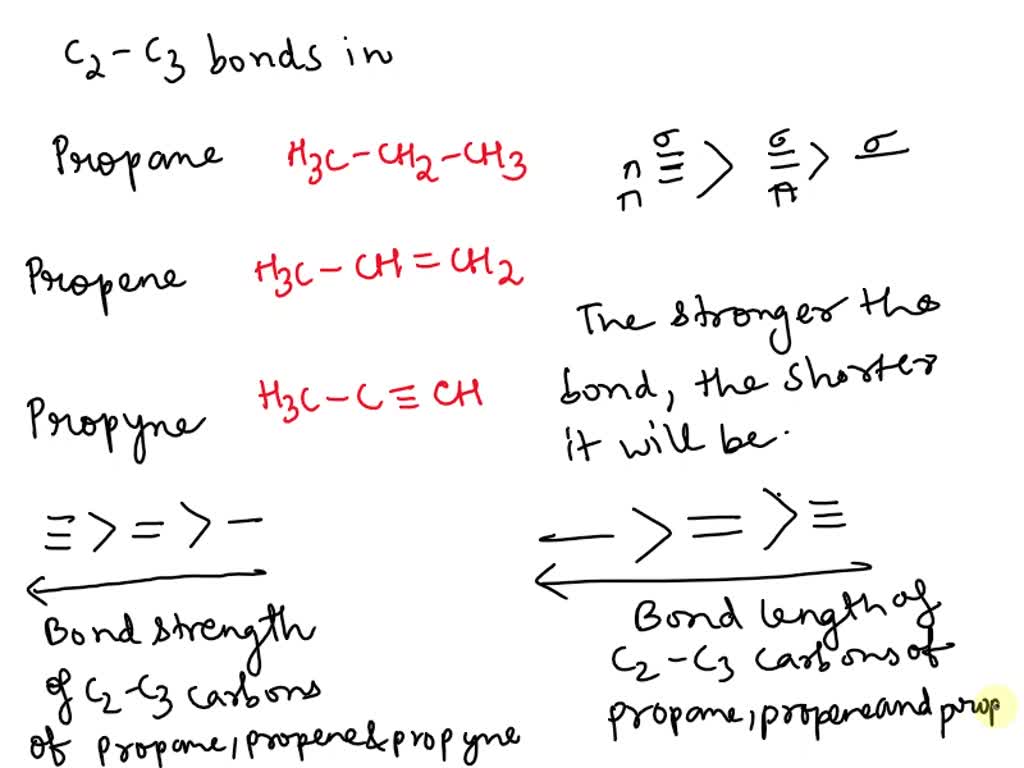 C2 - C3 bonds in
Propane H3C-CH2-CH3
σ ≡ π π > σ = π > σ —
Propene H3C-CH=CH2
The stronger the
bond, the shorter
it will be.
Propyne H3C-C≡CH
≡ > = > -
Bond strength
of C2-C3 carbons
of propane, propene & propyne
— > = > ≡
Bond length of
C2-C3 carbons of
propane, propene and prop